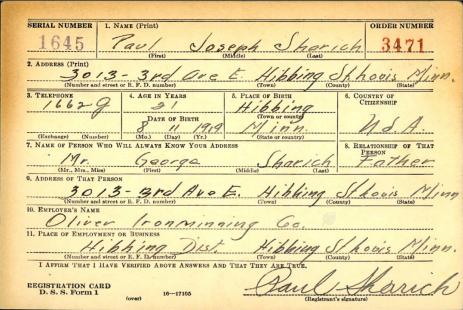 SERIAL NUMBER 1. NAME (Print) ORDER NUMBER
1645 Paul Joseph Sharich 3471
(First) (Middle) (Last)
2. ADDRESS (Print)
3013- 3rd Ave E. Hibbing St. Louis Minn.
(Number and street or R. F. D. number) (Town) (County) (State)
3. TELEPHONE 4. AGE IN YEARS 5. PLACE OF BIRTH 6. COUNTRY OF CITIZENSHIP
1662 J 21 Hibbing
DATE OF BIRTH (Town or county)
8 11 1919 Minn. U.S.A.
(Exchange) (Number) (Mo.) (Day) (Yr.) (State or country)
7. NAME OF PERSON WHO WILL ALWAYS KNOW YOUR ADDRESS 8. RELATIONSHIP OF THAT PERSON
Mr. George Sharich Father
(Mr., Mrs., Miss) (First) (Middle) (Last)
9. ADDRESS OF THAT PERSON
3013- 3rd Ave E. Hibbing St. Louis Minn
(Number and street or R. F. D. number) (Town) (County) (State)
10. EMPLOYER'S NAME
Oliver Ironminning Co.
11. PLACE OF EMPLOYMENT OR BUSINESS
Hibbing Dist. Hibbing St. Louis Minn.
(Number and street or R. F. D. number) (Town) (County) (State)
I AFFIRM THAT I HAVE VERIFIED ABOVE ANSWERS AND THAT THEY ARE TRUE.
REGISTRATION CARD Paul Sharich
D. S. S. Form 1 (over) 16—17105 (Registrant's signature)